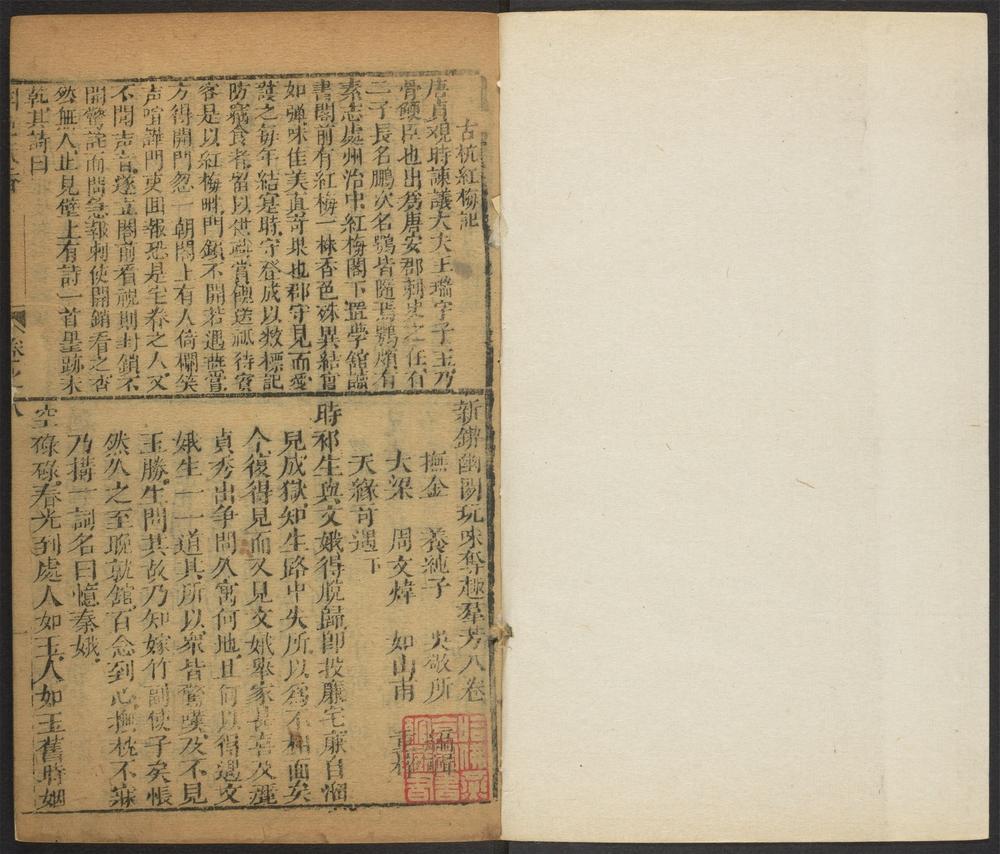 古杭紅梅記
唐貞觀時諫議大夫王瑞字子玉乃
骨鯁臣也出爲唐安郡刺史之任有
二子長名鵬次名鶚皆隨焉鶚頗有
素志處州治中紅梅閣下置學館臨
書閣前有紅梅一株香色殊異結實
如彈味佳美真奇果也郡守見而愛
護之每年結實時守登成以數標記
防竊食者留以供燕賞餽送祗待賓
客是以紅梅畔門鎖不開若遇燕賞
方得開門忽一朝閣上有人倚欄笑
声喧譁門吏囬報恐是宅眷之人又
不聞声音遂立閣前看視則封鎖不
開驚詫而問急報刺使開鎖看之杳
然無人止見壁上有詩一首墨跡未
乾其詩曰
新鐫幽閑玩味奪趣羣芳八卷
撫金 養純子 吳敬所
大梁 周文煒 如山甫
天緣奇遇下
時祁生與文娥得脫歸即投廉宅廉自溜
兒成獄知生路中失所以爲不相面矣
今復得見而又見文娥舉家甚喜及麗
貞秀出争問久寓何地且何以得遇文
娥生一一道其所以衆皆驚嘆及不見
玉勝生問其故乃知嫁竹副使子矣悵
然久之至晚就館百念到心撫枕不寐
乃搆一詞名曰憶秦娥
空碌碌春光到處人如玉人如玉舊時姻
卷之八